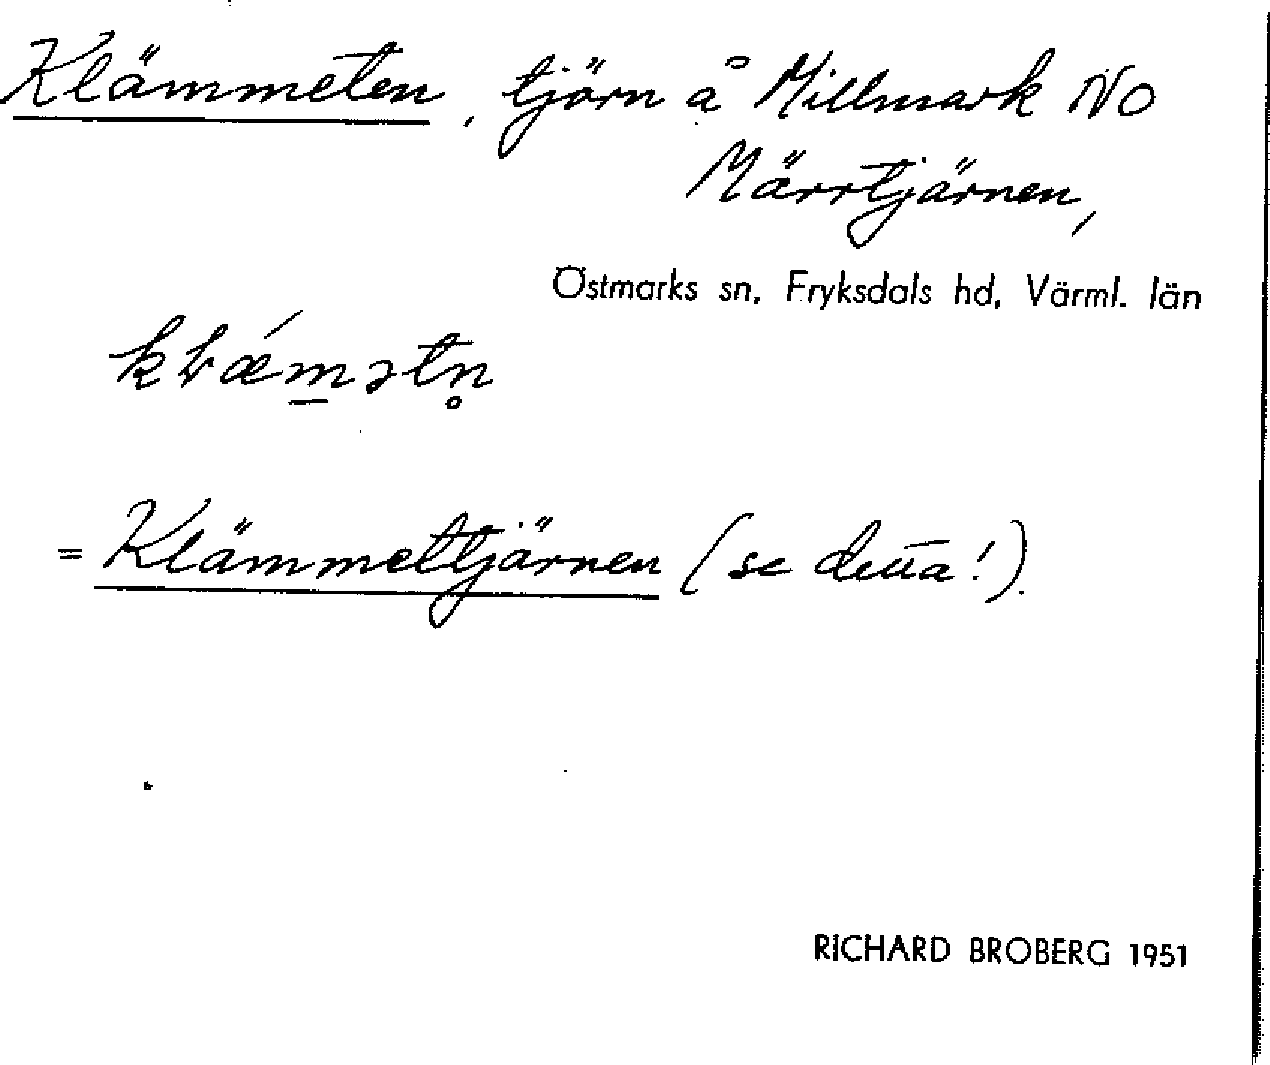 Klämmeten, tjärn å Millmark NO
Märrtjärnen,
Östmarks sn, Fryksdals hd, Värml. län
= Klämmettjärnen (se detta!).
RICHARD BROBERG 1951